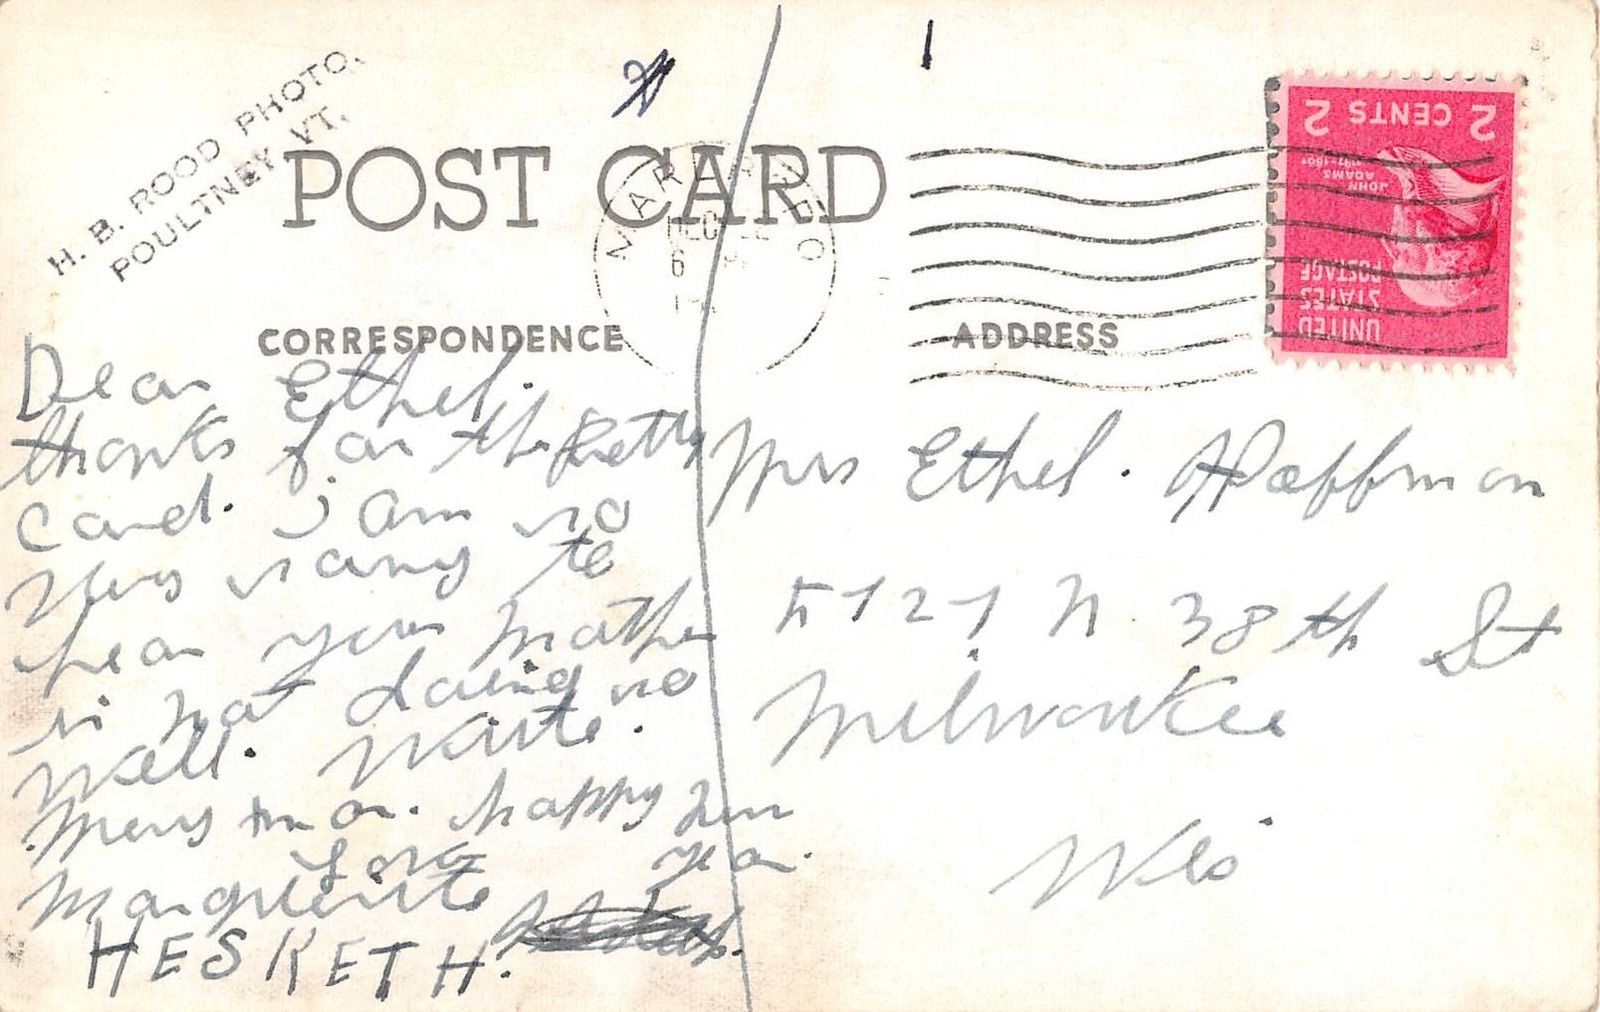 H. B. ROOD PHOTO.
POULTNEY VT.
POST CARD
DEC
6
CORRESPONDENCE
ADDRESS
2 CENTS 2
JOHN
ADAMS
UNITED
STATES
POSTAGE
Dear Ethel.
thanks for the Pretty
Card. i am so
Very sorry to
hear your Mother
is not doing so
Well. Write.
Merry . happy New
year.
Love
Marguerite
HESKETH.
Mrs Ethel. Haffman
5727 N 38th St
Milwaukee
Wis